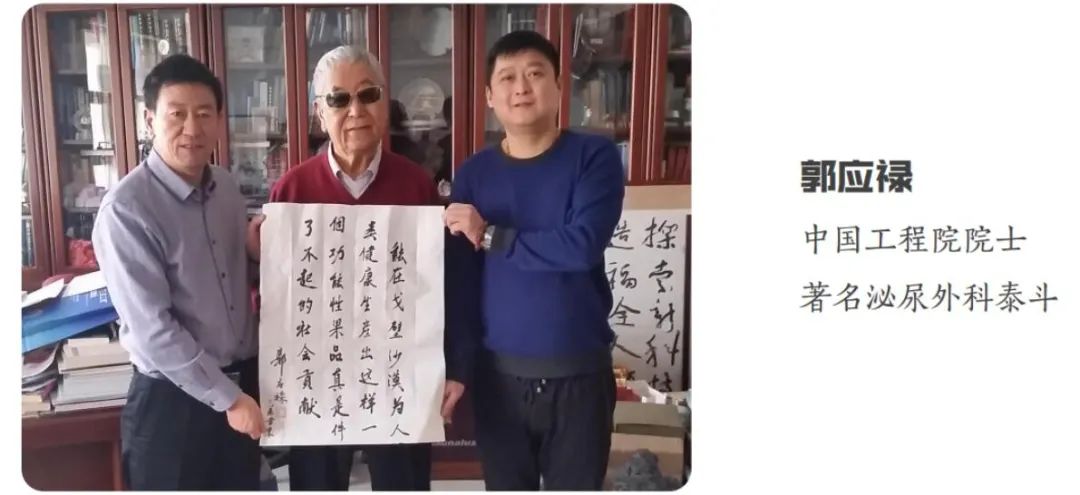 能在戈壁沙漠为人
类健康生产出这样一
個功能性果品真是件
了不起的社会貢献
郭应禄
探索新科
造福全人
郭应禄
中国工程院院士
著名泌尿外科泰斗